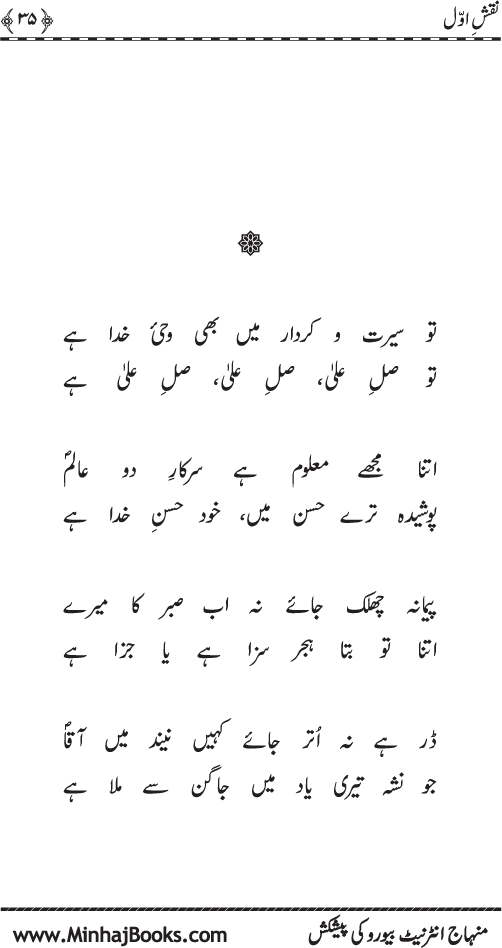 نقشِ اوّل
﴿ ۳۵ ﴾
تو سیرت و کردار میں بھی وحیٔ خدا ہے
تو صلِ علیٰ، صلِ علیٰ، صلِ علیٰ ہے
اتنا مجھے معلوم ہے سرکارِ دو عالمؐ
پوشیدہ ترے حسن میں، خود حسنِ خدا ہے
پیمانہ چھلک جائے نہ اب صبر کا میرے
اتنا تو بتا ہجر سزا ہے یا جزا ہے
ڈر ہے نہ اُتر جائے کہیں نیند میں آقاؐ
جو نشہ تیری یاد میں جاگن سے ملا ہے
منہاج انٹرنیٹ بیورو کی پیشکش
www.MinhajBooks.com